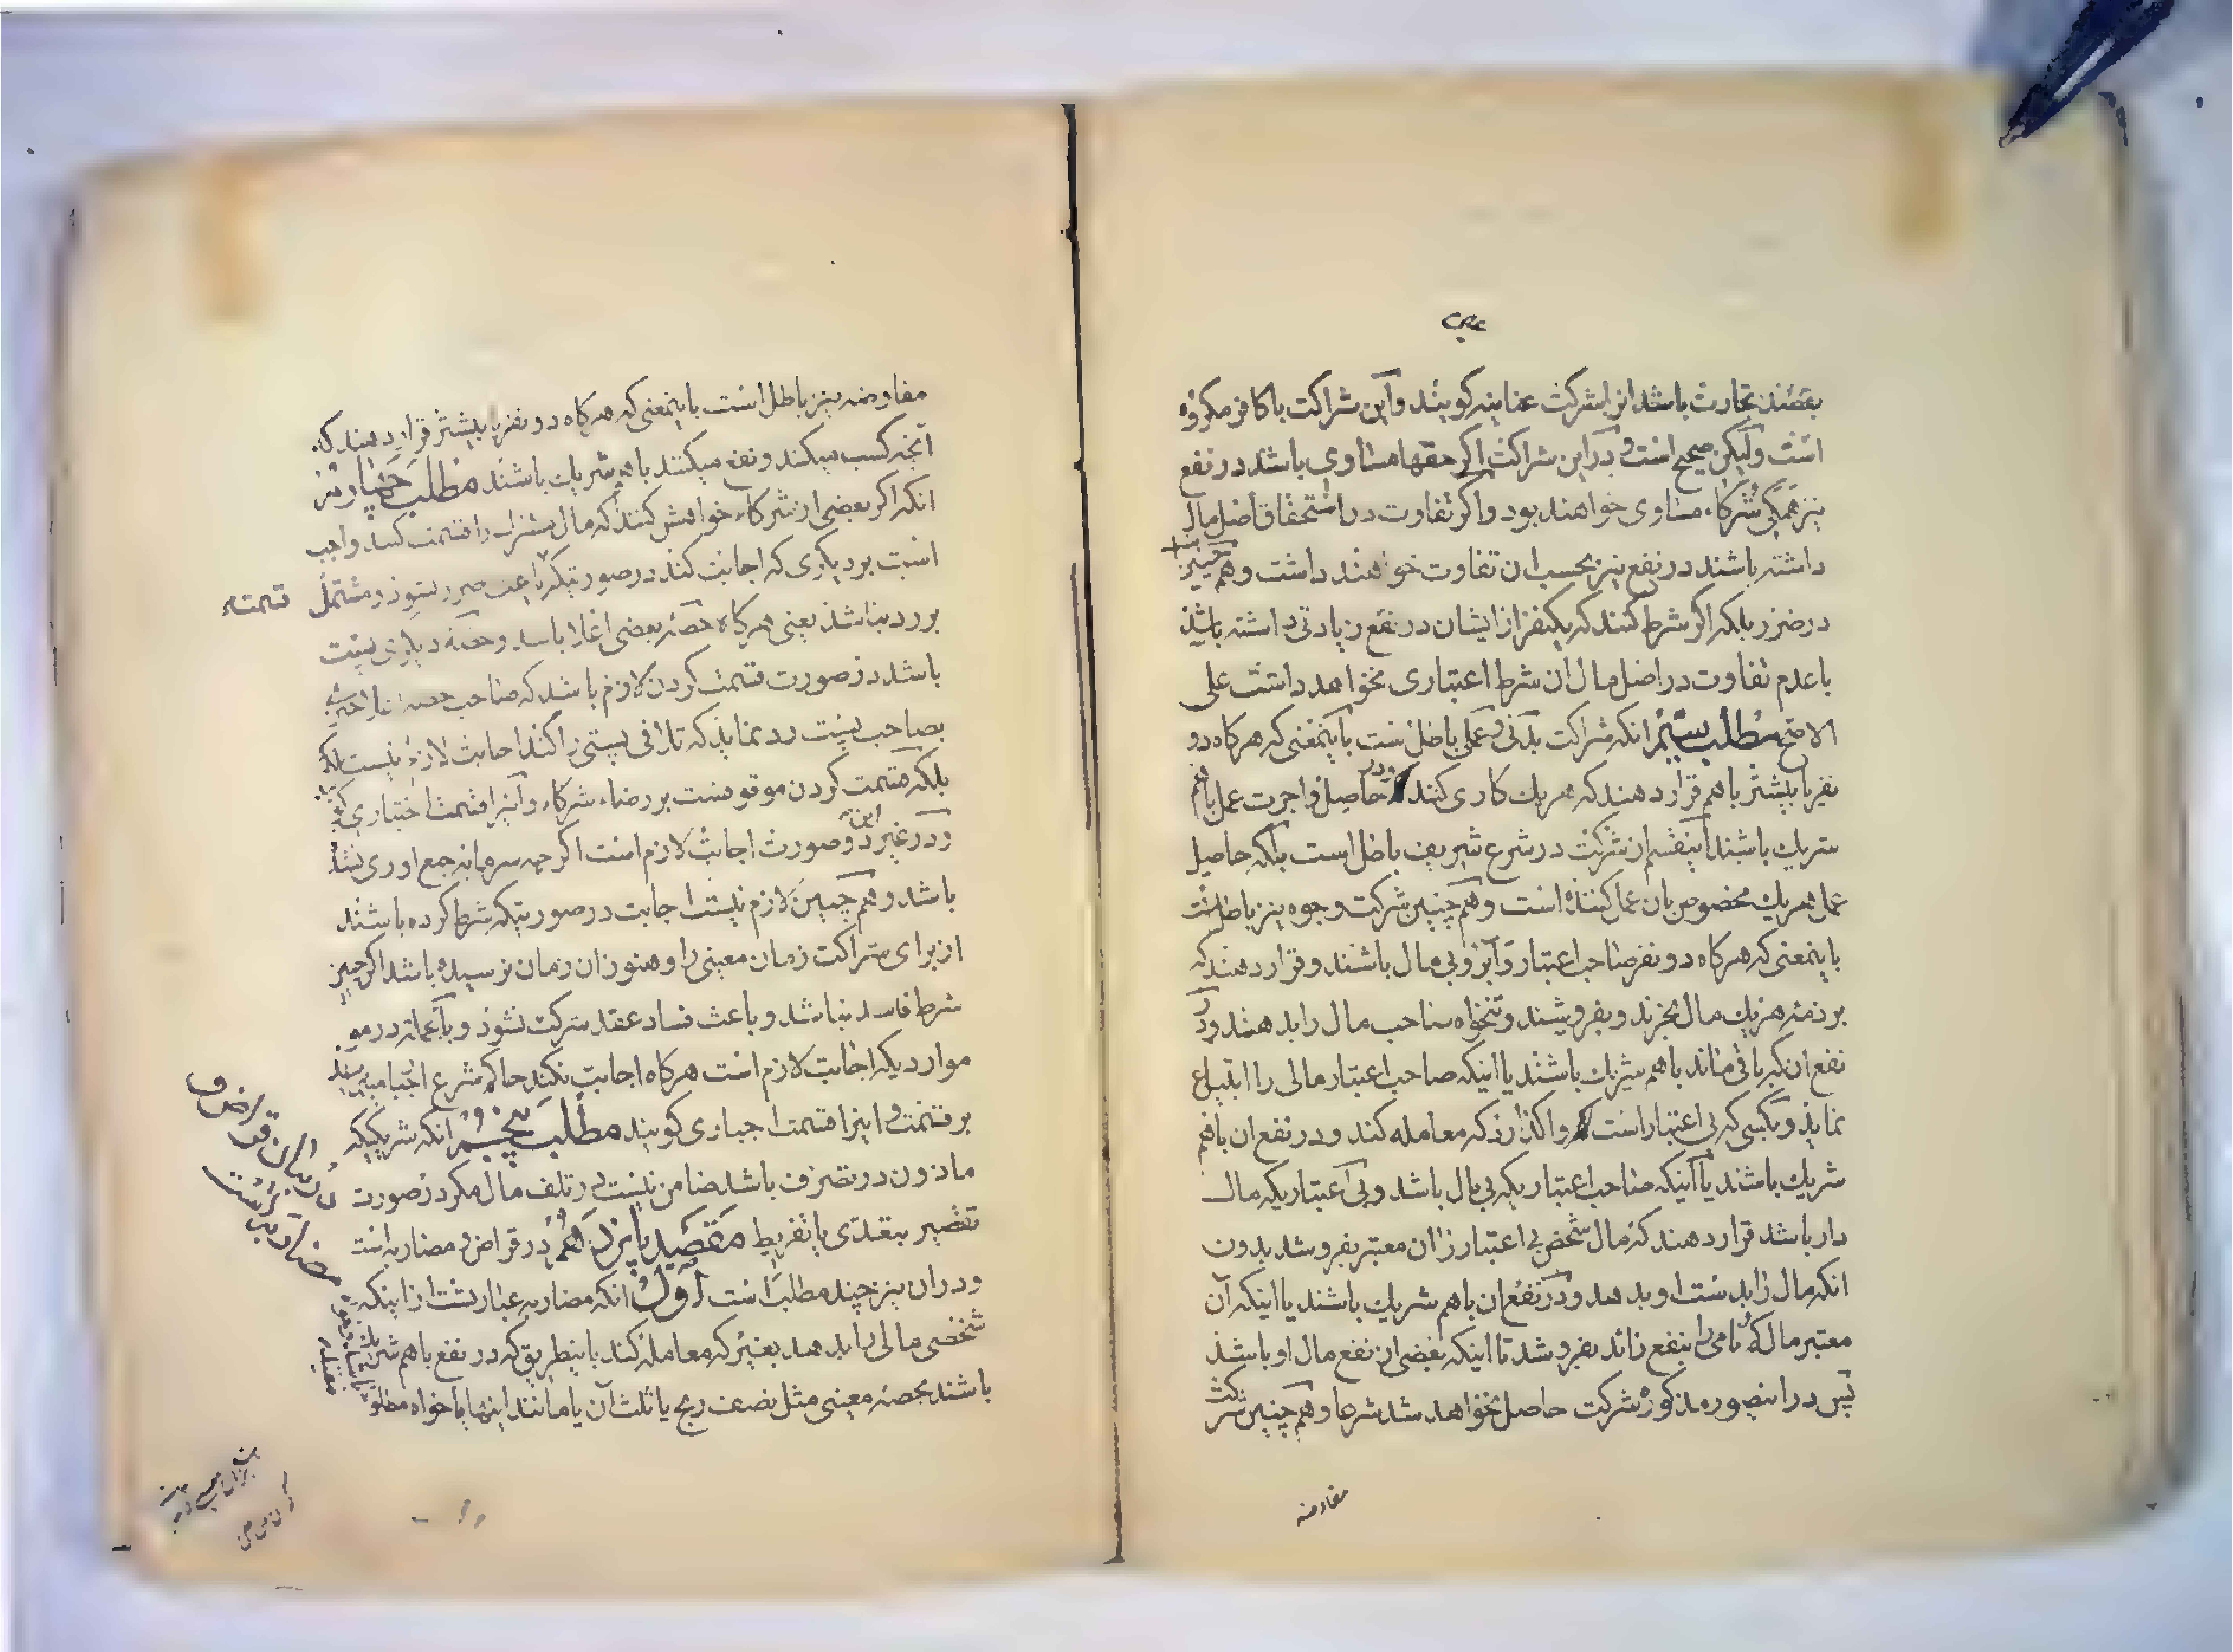 بقصد تجارت باشد انرا شرکت عنانیه کویند و این شراکت با کافر مکروه
است و لیکن صحیح است و در این شراکت اکر حقها مساوی باشد در نفع
نیز همکی شرکاء مساوی خواهند بود و اکر تفاوت در استحقاق اصل مال
داشته باشند در نفع نیز بحسب ان تفاوت خواهند داشت و هم چنین
در ضرر بلکه اکر شرط کنند که یکنفر از ایشان در نفع زیادتی داشته باشد
با عدم تفاوت در اصل مال ان شرط اعتباری نخواهد داشت علی
الاصح مطلب سیّم انکه شراکت بدنی و عملی باطل است باینمعنی که هر کاه دو
نفر یا بیشتر با هم قرار دهند که هر یک کاری کنند و در حاصل و اجرت عمل با هم
شریک باشند اینقسم از شرکت در شرع شریف باطل است بلکه حاصل
عمل هر یک مخصوص بان عمل کننده است و هم چنین شرکت وجوه نیز باطلست
باینمعنی که هر کاه دو نفر صاحب اعتبار و ابرو بی مال باشند و قرار دهند که
بر ذمه هر یک مال بخرند و بفروشند و تنخواه صاحب مال را بدهند و در
نفع ان که باقی ماند با هم شریک باشند یا اینکه صاحب اعتبار مالی را ابتیاع
نماید و بکسی که بی اعتبار است واکذارد که معامله کند و در نفع ان با هم
شریک باشند یا اینکه صاحب اعتباریکه بی مال باشد و بی اعتباریکه مال
دار باشد قرار دهند که مال شخص بی اعتبار را ان معتبر بفروشد بدون
انکه مال را بدست او بدهد و در نفع ان با هم شریک باشند یا اینکه آن
معتبر مال کم نامی را بنفع زائد بفروشد تا اینکه بعضی از نفع مال او باشد
پس در اینصور مذکوره شرکت حاصل نخواهد شد شرعا و هم چنین شرکت
مفاوضه
مفاوضه نیز باطل است باینمعنی که هر کاه دو نفر یا بیشتر قرار دهند که
آنچه کسب میکنند و نفع میکنند با هم شریک باشند مطلب چهارم
انکه اکر بعضی از شرکاء خواهش کنند که مال مشترک را قسمت کنند واجب
است بر دیکری که اجابت کند در صورتیکه باعث ضرر نشود و مشتمل
قسمت
بر رد نباشد یعنی هر کاه حصه بعضی اعلا باشد و حصه دیکری پست
باشد در صورت قسمت کردن لازم باشد که صاحب حصه اعلا چیزی
بصاحب پست رد نماید که تلافی پستی را کند اجابت لازم نیست
بلکه قسمت کردن موقوفست بر رضاء شرکاء و آنرا قسمت اختیاری
و در غیر این دو صورت اجابت لازم است اکر چه سرمایه جمع اوری نشده
باشد و هم چنین لازم نیست اجابت در صورتیکه شرط کرده باشند
از برای شراکت زمان معینی را و هنوز ان زمان نرسیده باشد اکر چنین
شرط فاسد نباشد و باعث فساد عقد شرکت نشود و بالجمله در
مواردیکه اجابت لازم است هر کاه اجابت نکند حاکم شرع اجبار
بر قسمت و اینرا قسمت اجباری کویند مطلب پنجم انکه شریکیکه
ماذون در تصرف باشد ضامن نیست در تلف مال مکر در صورت
تقصیر بتعدی یا تفریط مقصد یازدهم در قراض و مضاربه است
در بیان قراض و
مضاربه است
و در ان نیز چند مطلب است اول انکه مضاربه عبارتست از اینکه
شخصی مالی را بدهد بغیر که معامله کند باینطریق که در نفع با هم شریک
باشند بحصه معینی مثل نصف ربح یا ثلث آن یا مانند اینها یا خواه